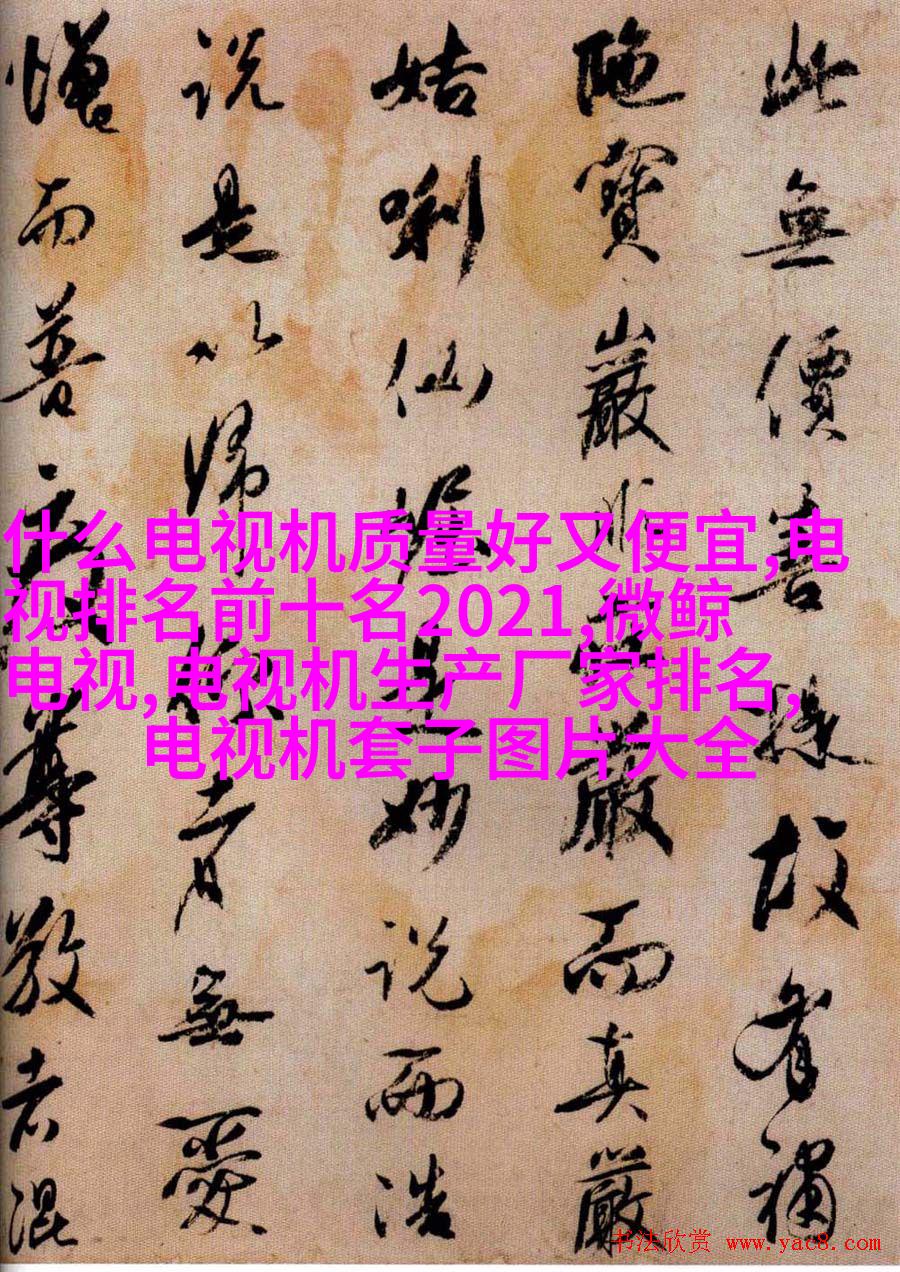 此無價害故有補
陁寶巖嚴而真嚴
姞唎仙妙説而浩
説是以歸者無愛
憎而普尊敬者混
什么电视机质量好又便宜,电
视排名前十名2021,微鲸
电视,电视机生产厂家排名,
电视机套子图片大全
书法欣赏 www.yac8.com